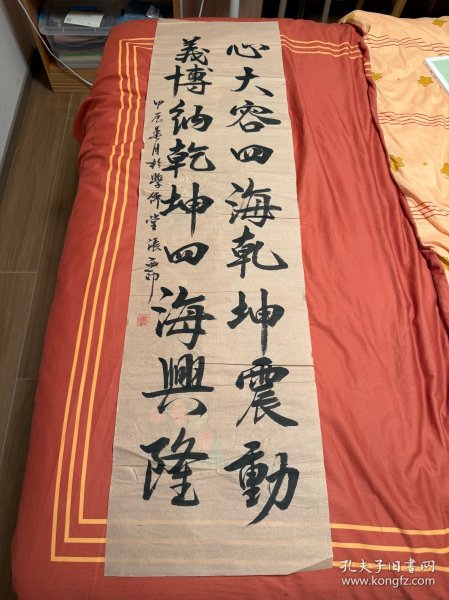 心大容四海乾坤震動
義博納乾坤四海興隆
甲辰葭月於學儕堂張
孔夫子旧书网
www.kongfz.com